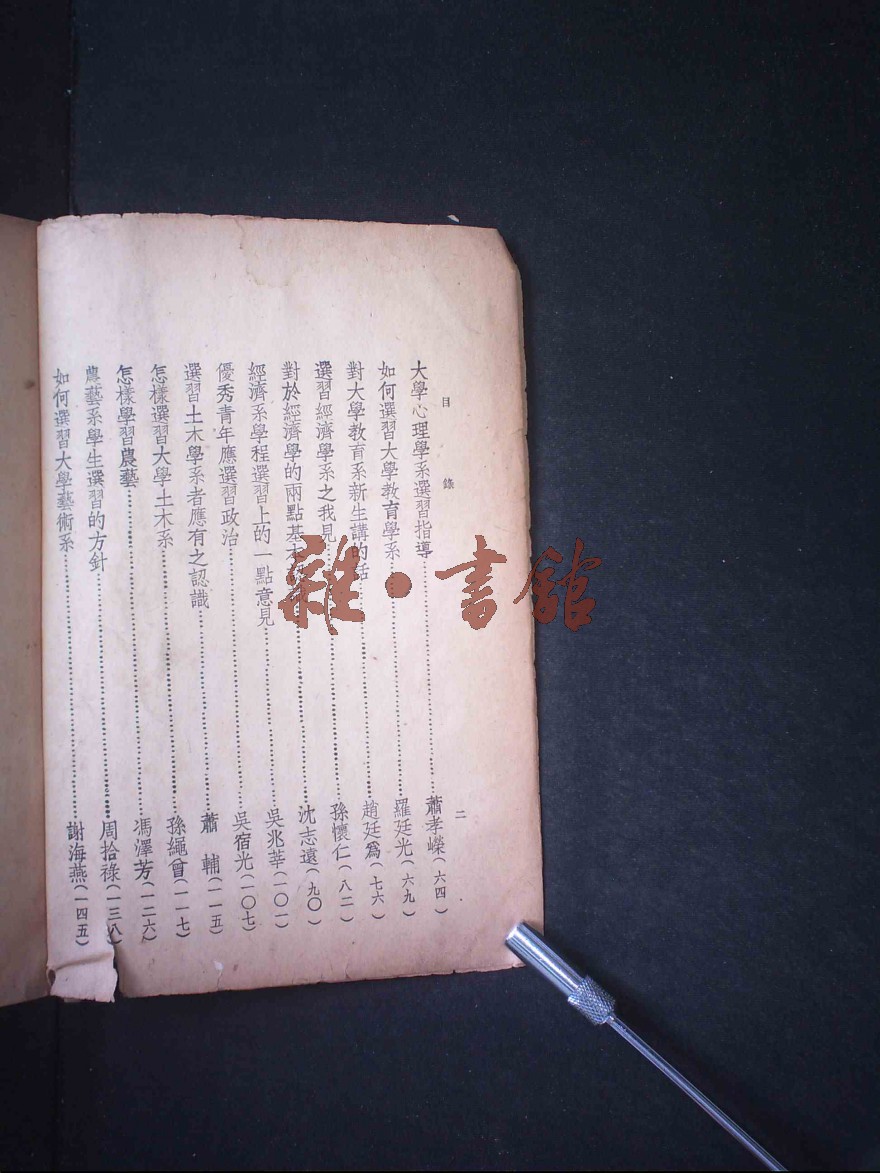 目錄
二
大學心理學系選習指導……蕭孝嶸(六四)
如何選習大學教育學系……羅廷光(六九)
對大學教育系新生講的話……趙廷為(七六)
選習經濟學系之我見……孫懷仁(八二)
對於經濟學的兩點基本……沈志遠(九〇)
經濟系學程選習上的一點意見……吳兆莘(一〇一)
優秀青年應選習政治……吳宿光(一〇七)
選習土木學系者應有之認識……蕭輔(一一五)
怎樣選習大學土木系……孫繩曾(一一七)
怎樣學習農藝……馮澤芳(一二六)
農藝系學生選習的方針……周拾祿(一三八)
如何選習大學藝術系……謝海燕(一四五)
雜·書館